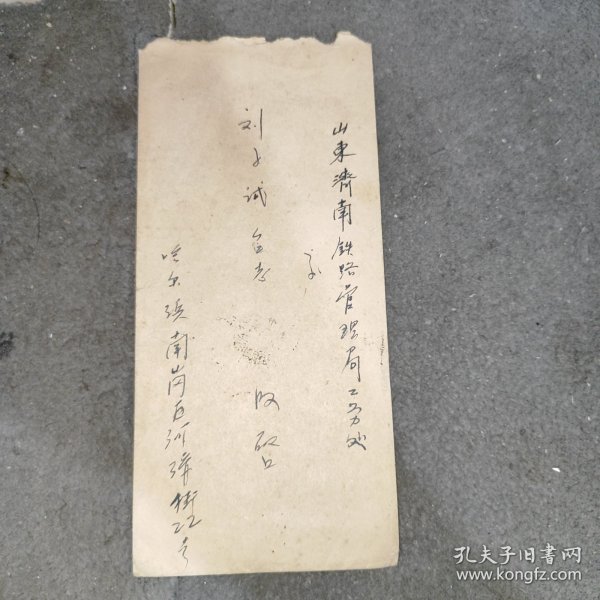 山東濟南鉄路管理局工务处
交
刘子诚
收启
哈尔滨南岗区河溝街22号
孔夫子旧书网
www.kongfz.com